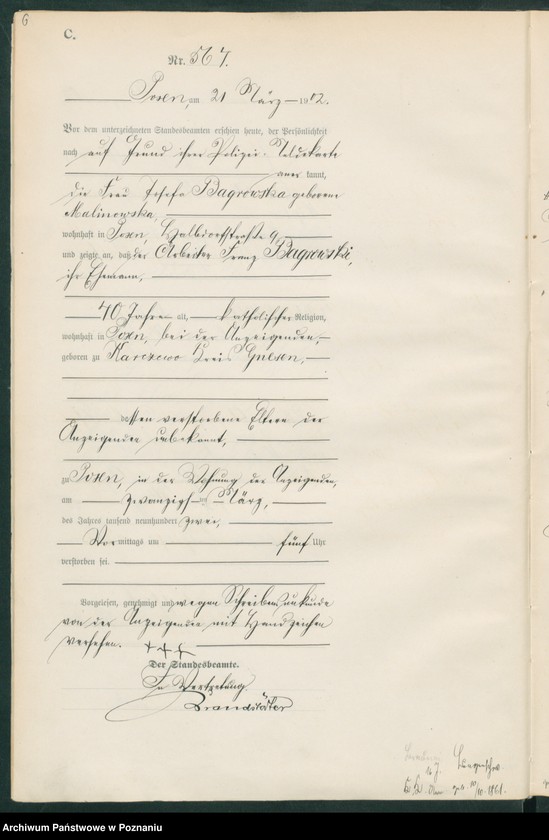 6
C.
Nr. 567.
Posen, am 21 März 1902.
Vor dem unterzeichneten Standesbeamten erschien heute, der Persönlichkeit
nach auf Grund ihrer Polizei-Meldekarte
anerkannt,
die Frau Josefa Bagrowska geborene
Malinowska,
wohnhaft in Posen, Halbdorfstraße 9
und zeigte an, daß der Arbeiter Franz Bagrowski,
ihr Ehemann,
40 Jahre alt, katholischer Religion,
wohnhaft in Posen, bei der Anzeigenden,
geboren zu Karczewo Kreis Gnesen,
dessen verstorbene Eltern der
Anzeigenden unbekannt,
zu Posen, in der Wohnung der Anzeigenden,
am zwanzigsten März,
des Jahres tausend neunhundert zwei,
Vormittags um fünf Uhr
verstorben sei.
Vorgelesen, genehmigt und wegen Schreibensunkunde
von der Anzeigenden mit Handzeichen
versehen. +++
Der Standesbeamte.
In Vertretung.
Brandstädter
1861.
Archiwum Państwowe w Poznaniu